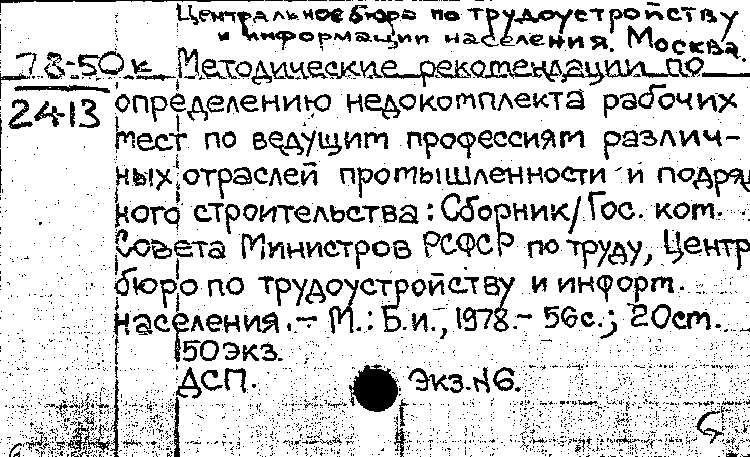 Центральное бюро по трудоустройству
и информации населения. Москва.
78-50к Методические рекомендации по
24-13 определению недокомплекта рабочих
мест по ведущим профессиям различ-
ных отраслей промышленности и подряд
ного строительства: Сборник/Гос. ком.
Совета Министров РСФСР по труду, Центр
бюро по трудоустройству и информ.
населения. - М.: Б.и., 1978. - 56с.; 20см.
150экз.
ДСП. Экз.№6.